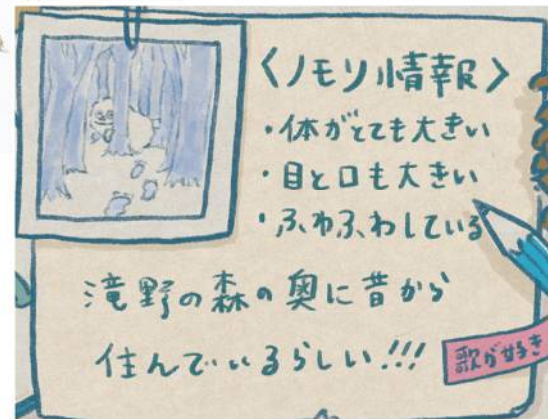 〈ノモソ情報〉
・体がとても大きい
・目と口も大きい
・ふわふわしている
滝野の森の奥に昔から
住んでいるらしい!!!
歌が好き